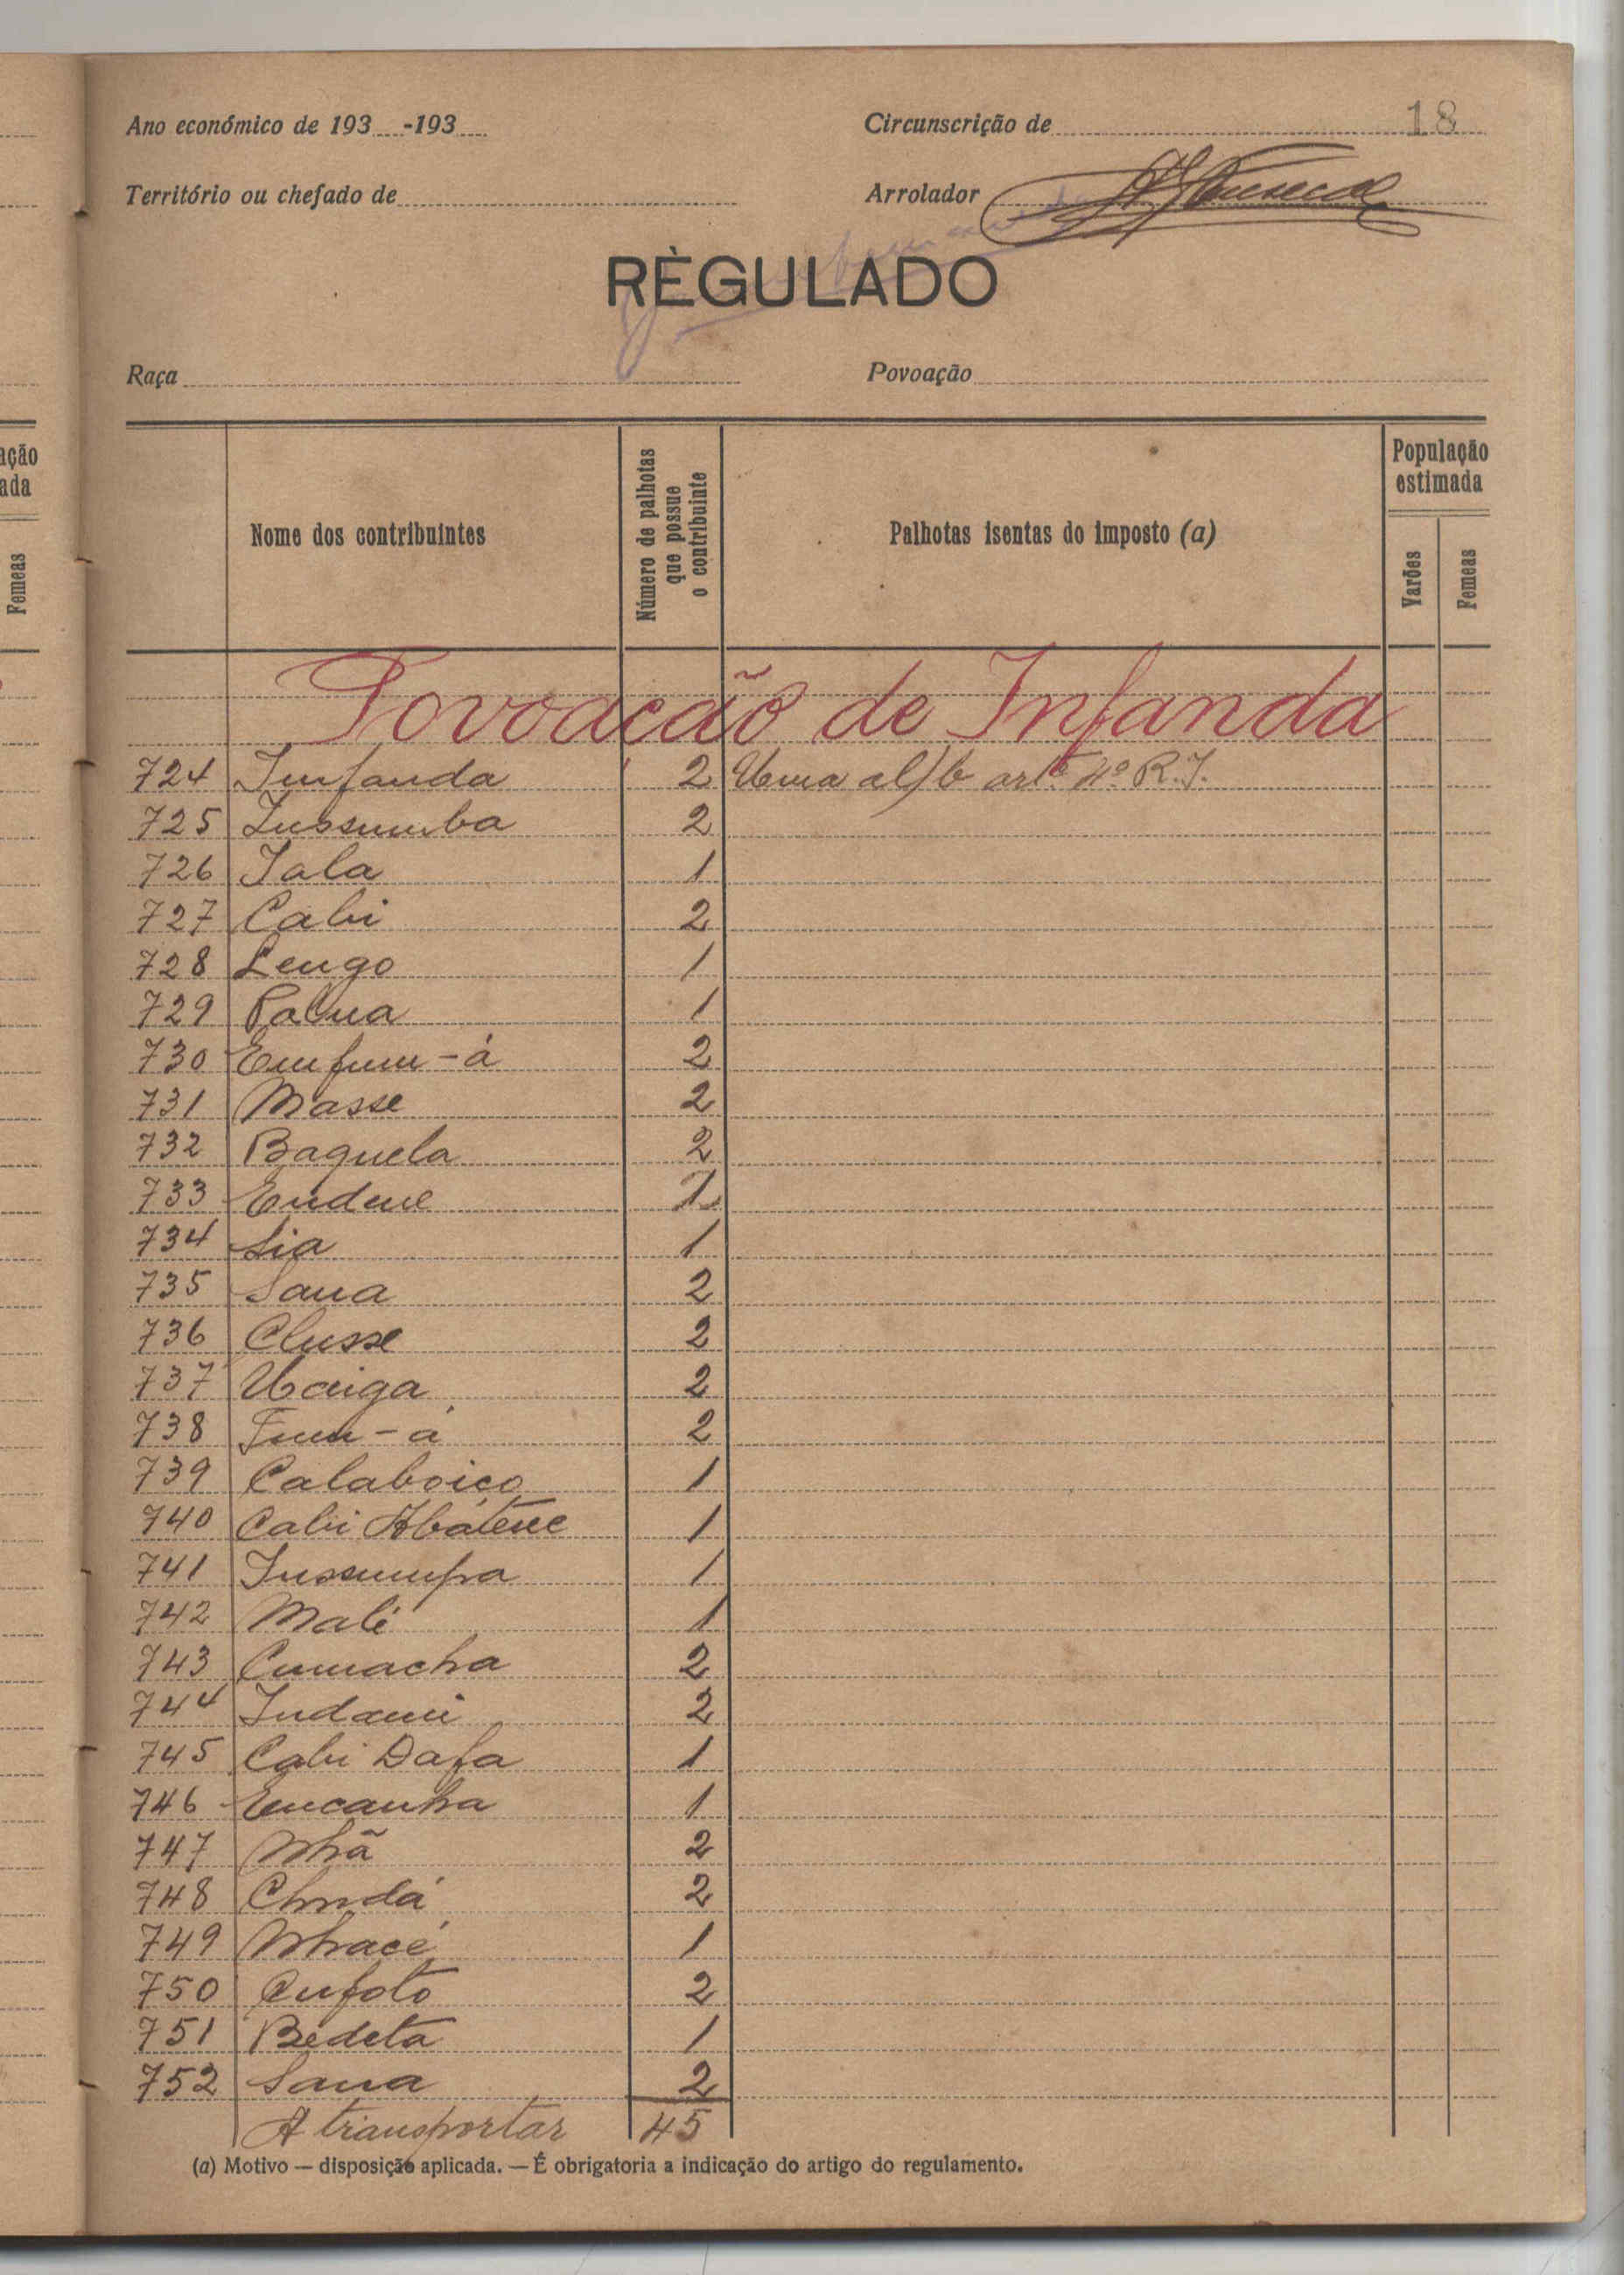 Ano económico de 193 -193
Circunscrição de
18
Território ou chefado de
Arrolador
RÈGULADO
Raça
Povoação
ação
ada
Femeas
Nome dos contribuintes
Número de palhotas que possue o contribuinte
Palhotas isentas do imposto (a)
População estimada
Varões
Femeas
Povoacão de Infanda
724 Infanda 2 Uma al) b artº. 4º R. I.
725 Iussumba 2
726 Iala 1
727 Cabi 2
728 Lengo 1
729 1
730 Emfum-á 2
731 Masse 2
732 Baguela 2
733 1
734 Sia 1
735 Sana 2
736 Clusse 2
737 Uaiga 2
738 Fum-á 2
739 Calaboiço 1
740 Cabi Abátene 1
741 Iussumpa 1
742 Malé 1
743 Cumacha 2
744 Indami 2
745 Cabi Dafa 1
746 Encanha 1
747 Nhã 2
748 2
749 Nhacé 1
750 Cufoto 2
751 Bedeta 1
752 Sana 2
A transportar 45
(a) Motivo — disposição aplicada. — É obrigatoria a indicação do artigo do regulamento.